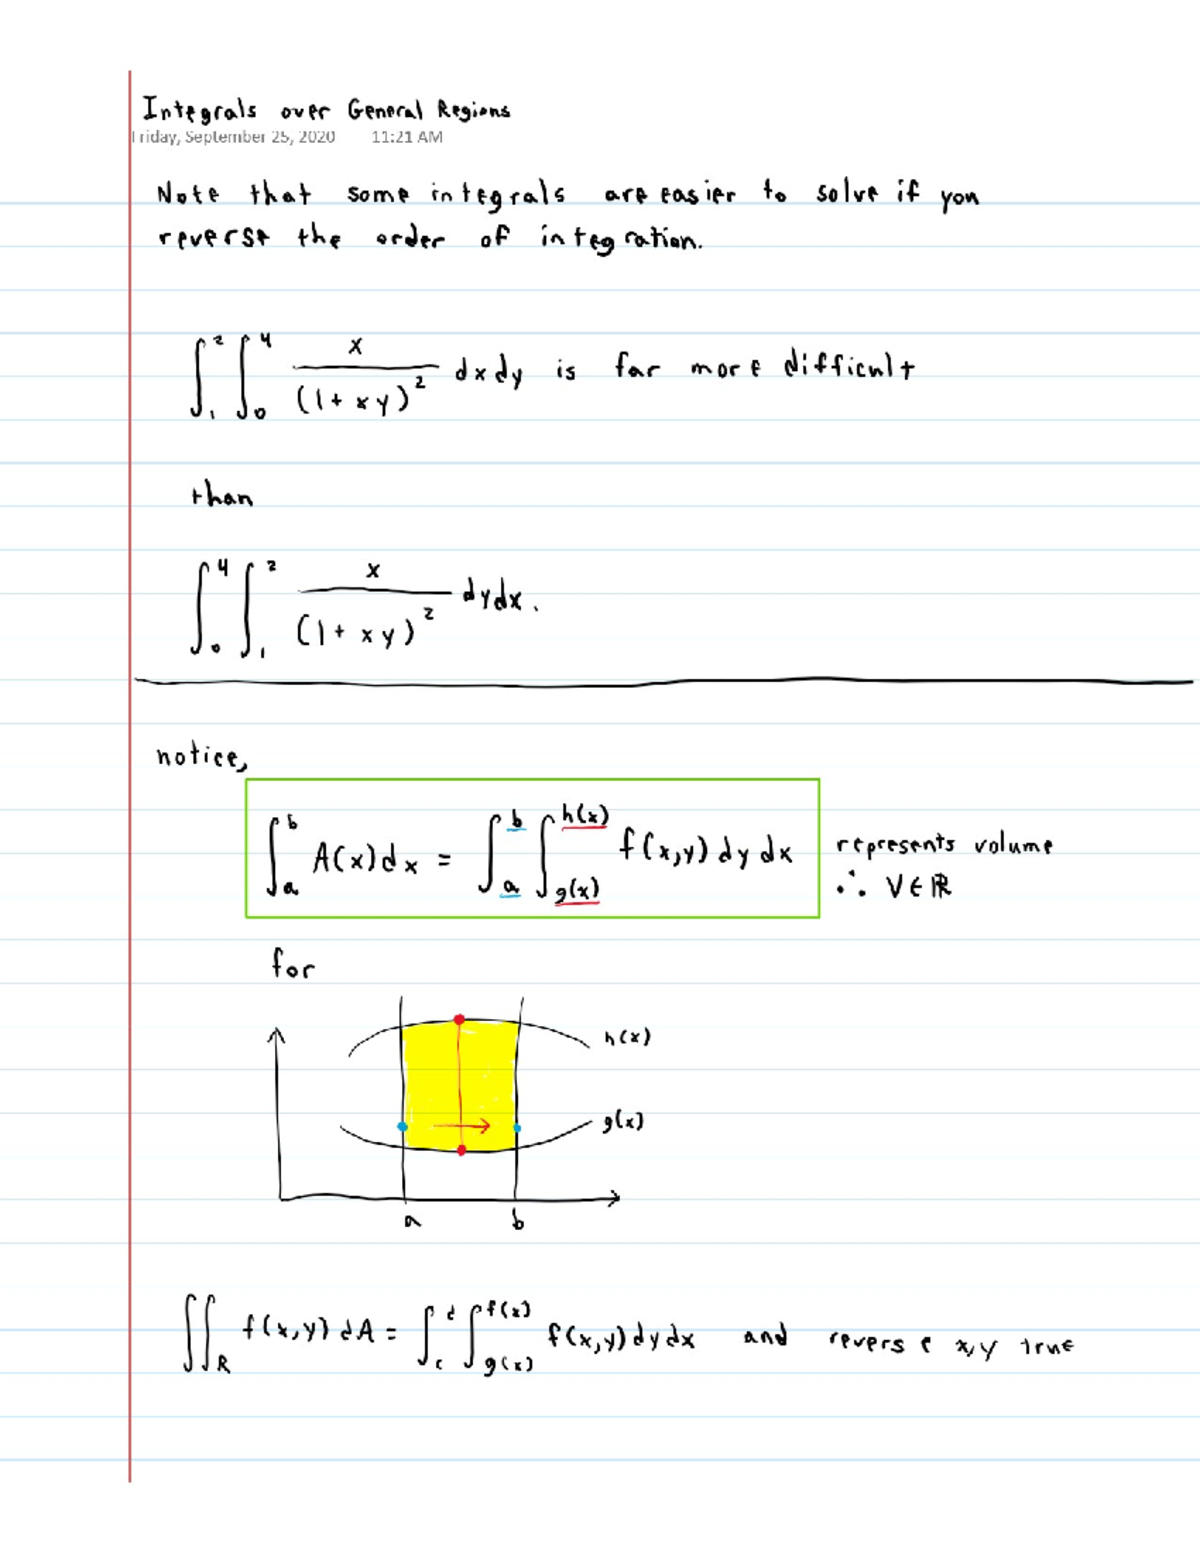 Integrals over General Regions
Friday, September 25, 2020 11:21 AM
Note that some integrals are easier to solve if you
reverse the order of integration.
∫₁² ∫₀⁴ x/(1+xy)² dxdy is far more difficult
than
∫₀⁴ ∫₁² x/(1+xy)² dydx.
notice,
∫ₐᵇ A(x)dx = ∫ₐᵇ ∫_{g(x)}^{h(x)} f(x,y) dy dx represents volume
∴ V∈ℝ
for
h(x)
g(x)
a b
∬_R f(x,y) dA = ∫_c^d ∫_{g(x)}^{f(x)} f(x,y) dy dx and reverse x,y true